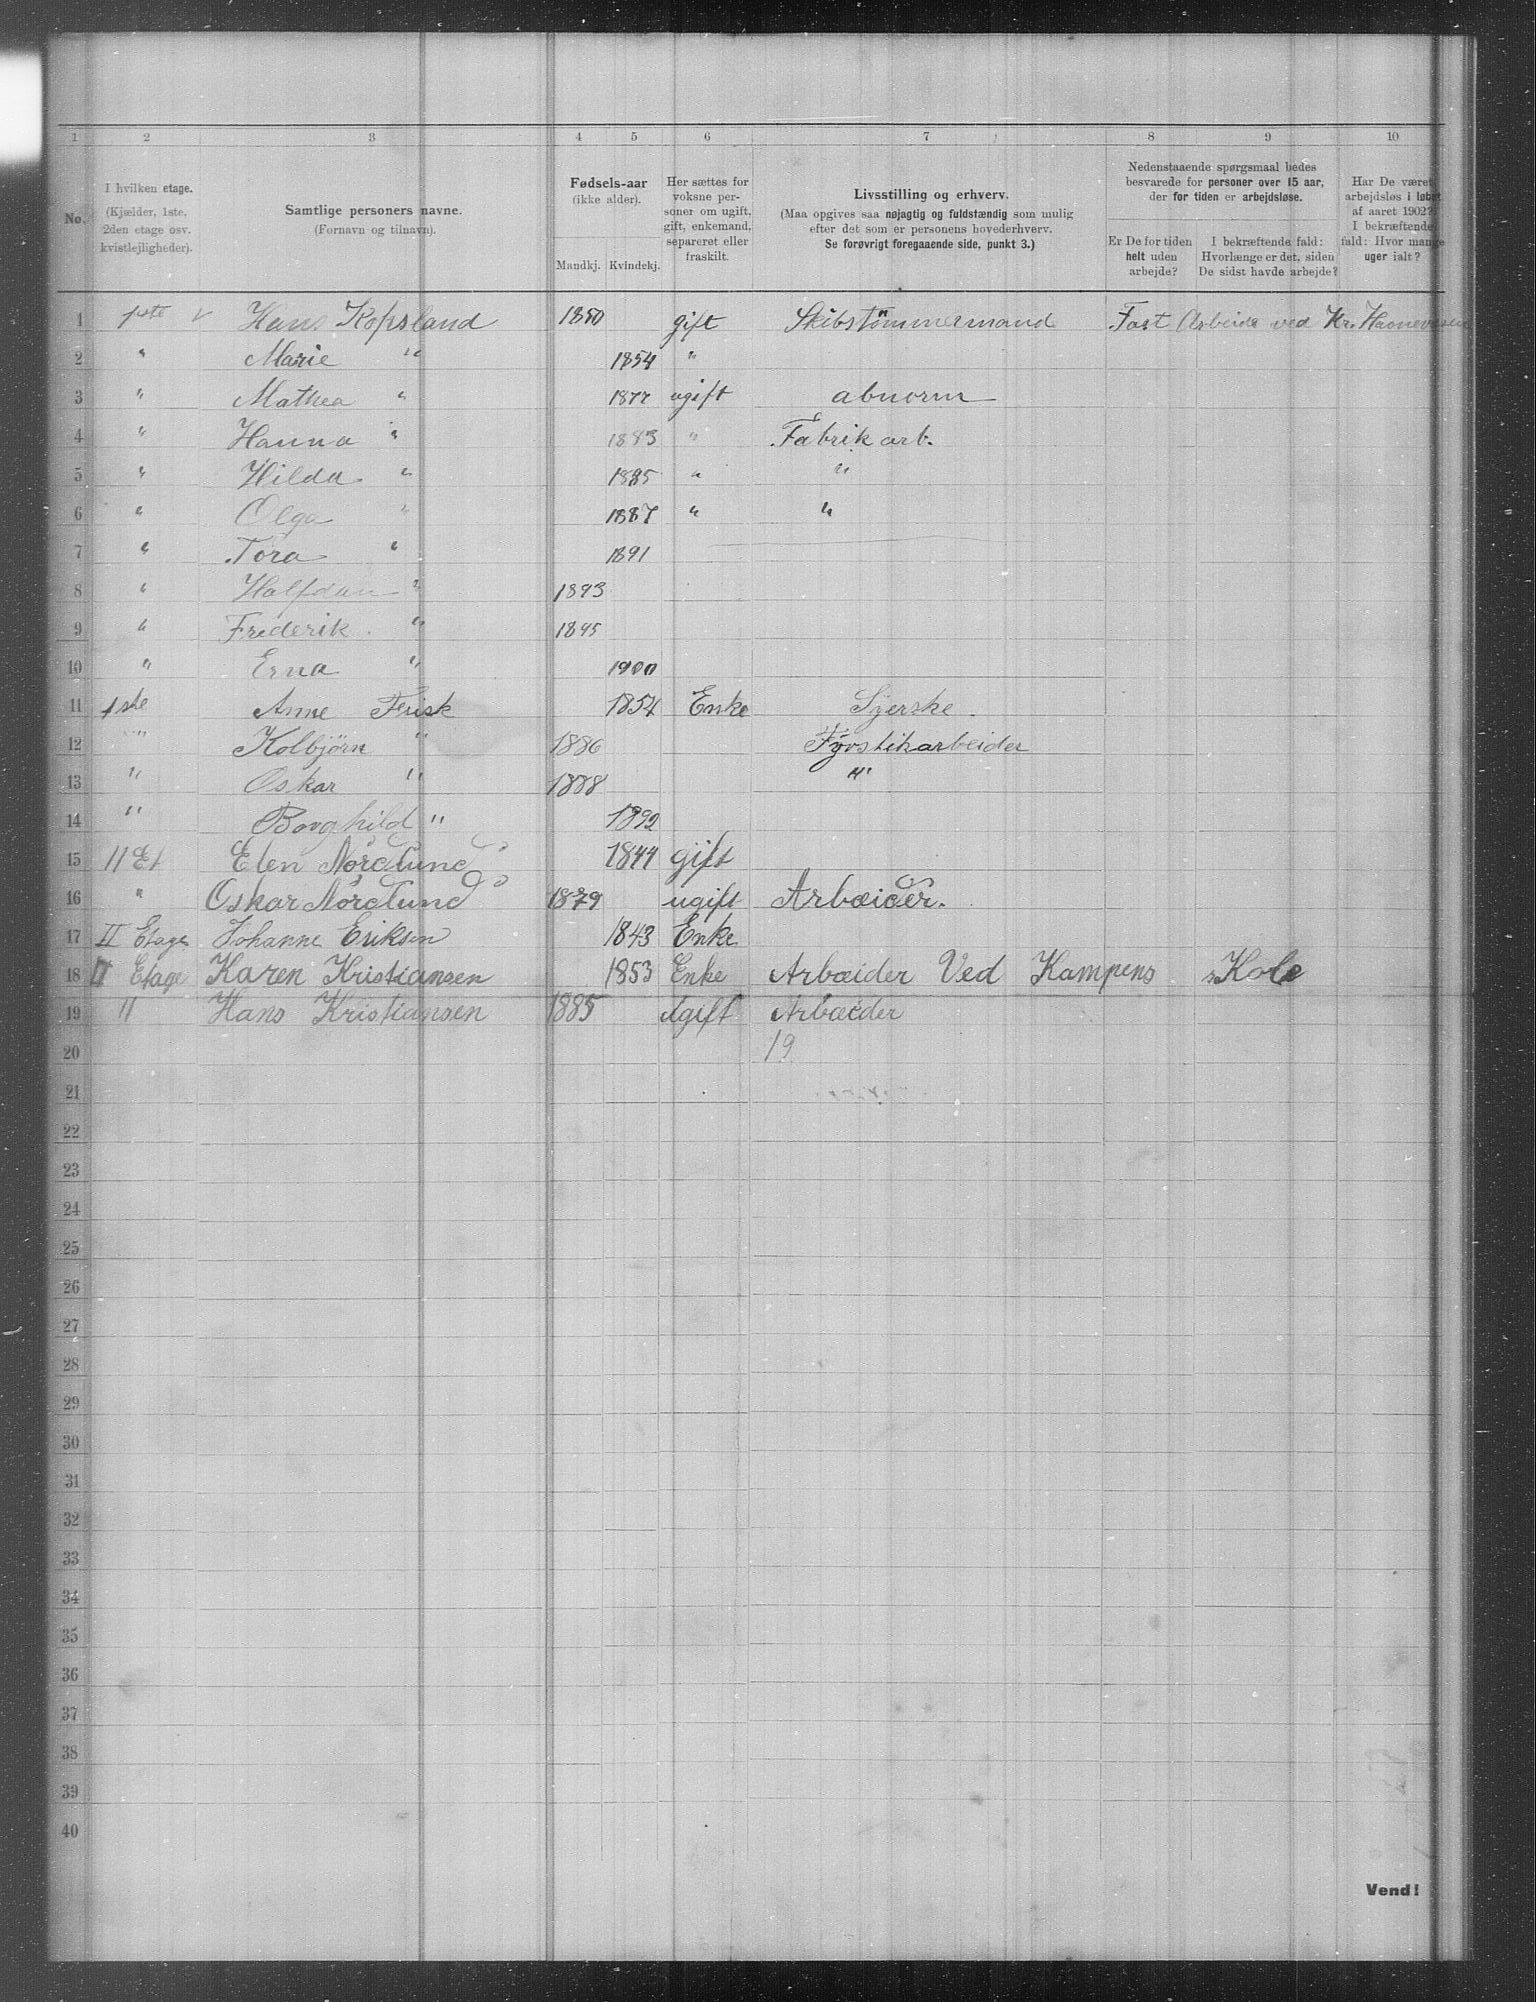 1 2 3 4 5 6 7 8 9 10
No.
I hvilken etage.
(Kjælder, 1ste,
2den etage osv.
kvistlejligheder).
Samtlige personers navne.
(Fornavn og tilnavn).
Fødsels-aar
(ikke alder).
Mandkj. Kvindekj.
Her sættes for
voksne per-
soner om ugift,
gift, enkemand,
separeret eller
fraskilt.
Livsstilling og erhverv.
(Maa opgives saa nøjagtig og fuldstændig som mulig
efter det som er personens hovederhverv.
Se forøvrigt foregaaende side, punkt 3.)
Nedenstaaende spørgsmaal bedes
besvarede for personer over 15 aar,
der for tiden er arbejdsløse.
Er De for tiden
helt uden
arbejde?
I bekræftende fald:
Hvorlænge er det, siden
De sidst havde arbejde?
Har De været
arbejdsløs i løbet
af aaret 1902?
I bekræftende
fald: Hvor mange
uger ialt?
1 1ste Hans Kopsland 1850 gift Skibstømmermand Fast Arbeide ved Kr.
2 " Marie " 1854 "
3 " Mathea " 1877 ugift abnorm
4 " Hanna " 1883 " Fabrik arb.
5 " Hilda " 1885 " "
6 " Olga " 1887 " "
7 " Tora " 1891
8 " Halfdan " 1893
9 " Frederik " 1895
10 " Erna " 1900
11 1ste Anne 1854 Enke Syerske.
12 " Kolbjørn " 1886 Fyrstikarbeider
13 " Oskar " 1888 "
14 " Borghild " 1892
15 II Et Elen Nordlund 1844 gift
16 " Oskar Nordlund 1879 ugift Arbæider.
17 II Etage Johanne Eriksen 1843 Enke
18 II Etage Karen Kristiansen 1853 Enke Arbæider Ved Kampens Kole
19 " Hans Kristiansen 1885 Ugift Arbæider
20 19
21
22
23
24
25
26
27
28
29
30
31
32
33
34
35
36
37
38
39
40
Vend!